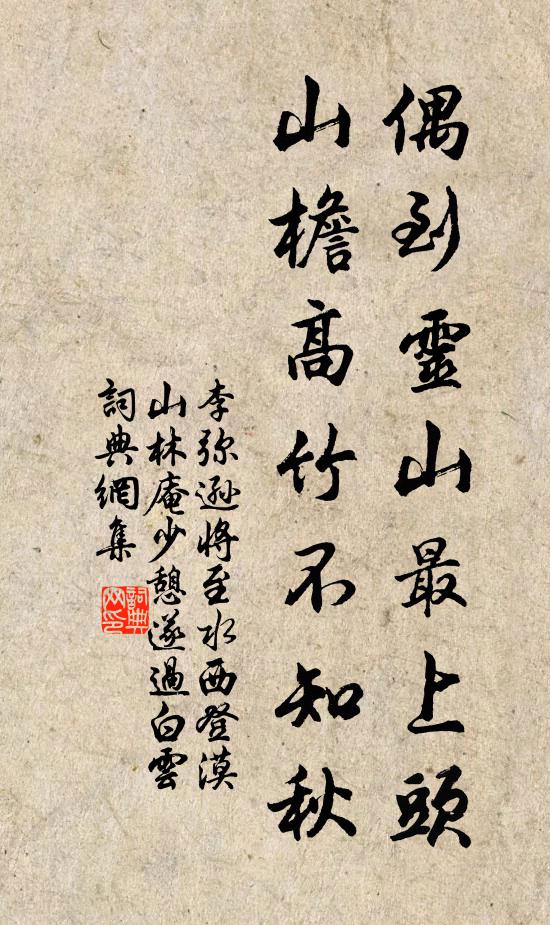 偶到靈山最上頭
山檐高竹不知秋
李弥遜將至水西登漠
山林庵少憩遂過白雲
詞典網集
詞典
网印